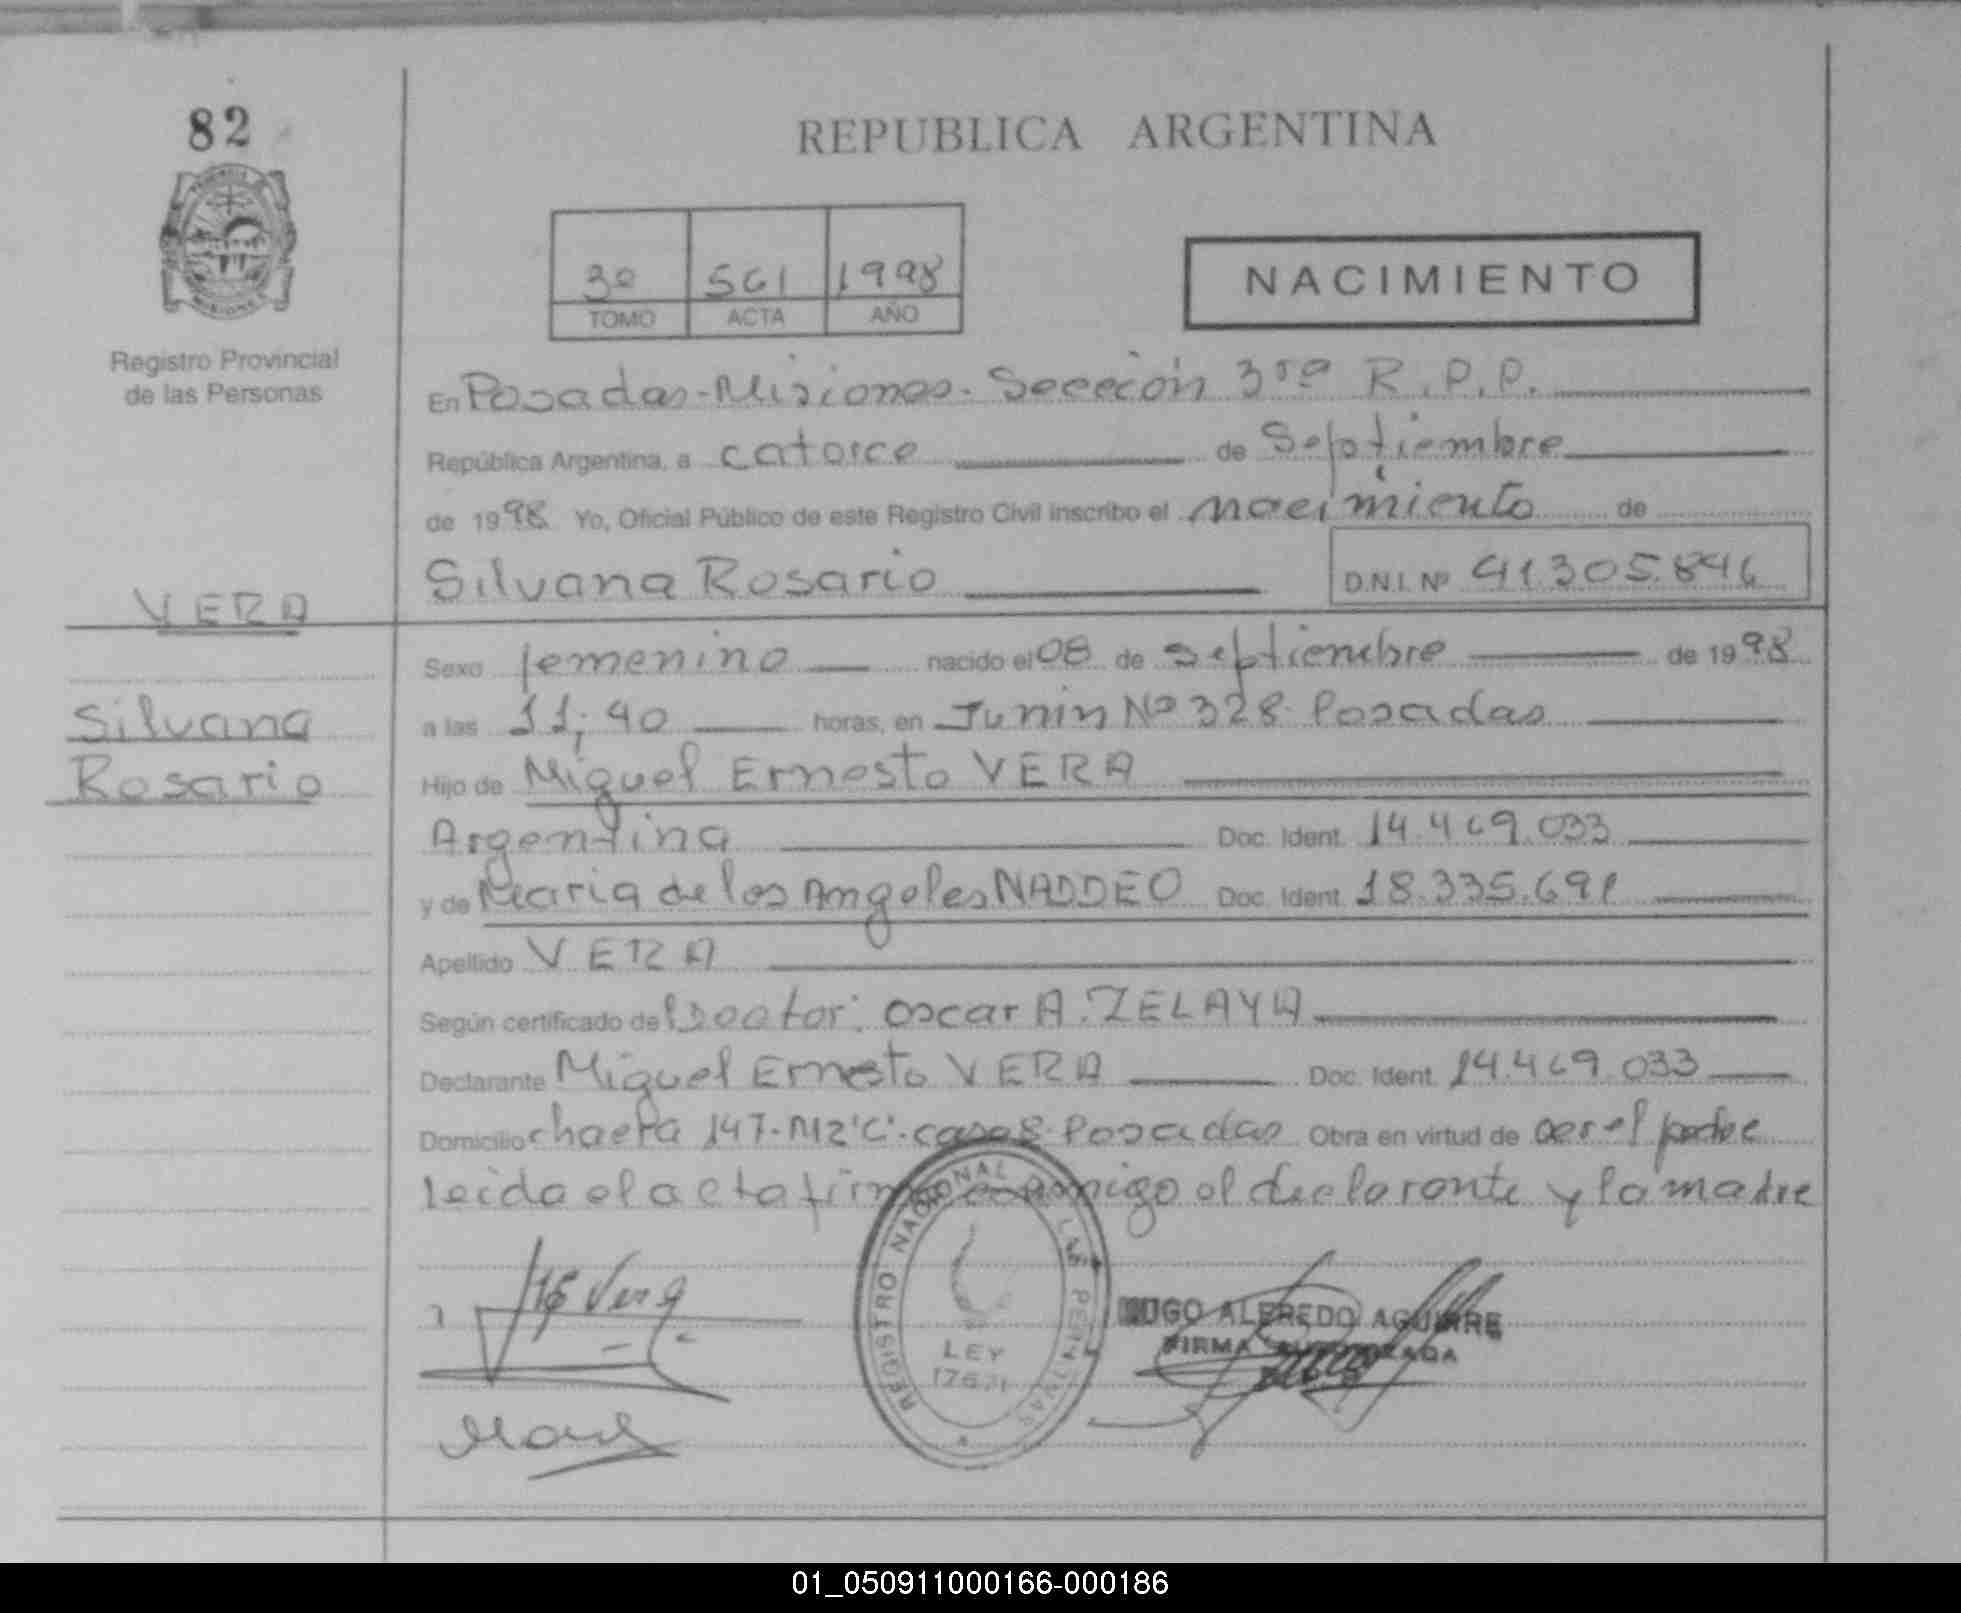 82
REPUBLICA ARGENTINA
3º 561 1998
TOMO ACTA AÑO
NACIMIENTO
Registro Provincial
de las Personas
En Posadas-Misiones. Sección 3ra R.P.P.
República Argentina, a catorce de Septiembre
de 1998 Yo, Oficial Público de este Registro Civil inscribo el nacimiento de
Silvana Rosario D.N.I. Nº 41.305.846
VERA
Sexo femenino nacido el 08 de septiembre de 1998
Silvana
a las 11,40 horas, en Junin Nº 328 Posadas
Rosario
Hijo de Miguel Ernesto VERA
Argentina Doc. Ident. 14.469.033
y de Maria de los Angeles NADDEO Doc. Ident. 18.335.691
Apellido VERA
Según certificado del Doctor: Oscar A. ZELAYA
Declarante Miguel Ernesto VERA Doc. Ident. 14.469.033
Domicilio chacra 147-MZ'C'-casa 8 Posadas Obra en virtud de ser el padre
Leida el acta firma conmigo el declarante y la madre
Vera
REGISTRO NACIONAL DE LAS PERSONAS
LEY
17671
HUGO ALFREDO AGUIRRE
FIRMA AUTORIZADA
01_050911000166-000186